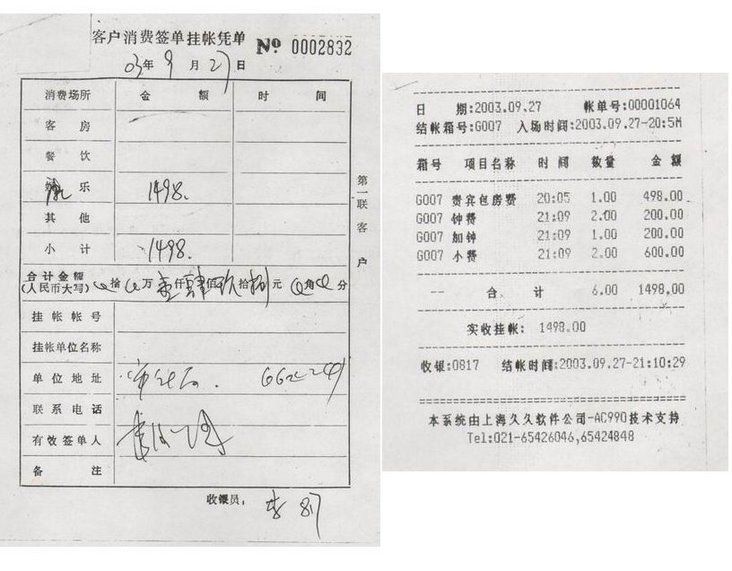 客户消费签单挂帐凭单 № 0002832
03年9月27日
消费场所 金额 时间
客房
餐饮
乐 1498.
其他
小计 1498.
合计金额
(人民币大写) 拾 万 壹仟肆佰玖拾捌元 角 分
挂帐帐号
挂帐单位名称
单位地址
联系电话
有效签单人
备注
收银员: 817
第一联客户
日 期:2003.09.27 帐单号:00001064
结帐箱号:G007 入场时间:2003.09.27-20:5
箱号 项目名称 时间 数量 金额
G007 贵宾包房费 20:05 1.00 498.00
G007 钟费 21:09 2.00 200.00
G007 加钟 21:09 1.00 200.00
G007 小费 21:09 2.00 600.00
-- 合 计 6.00 1498.00
实收挂帐: 1498.00
收银:0817 结帐时间:2003.09.27-21:10:29
本系统由上海久久软件公司-AC990技术支持
Tel:021-65426046,65424848